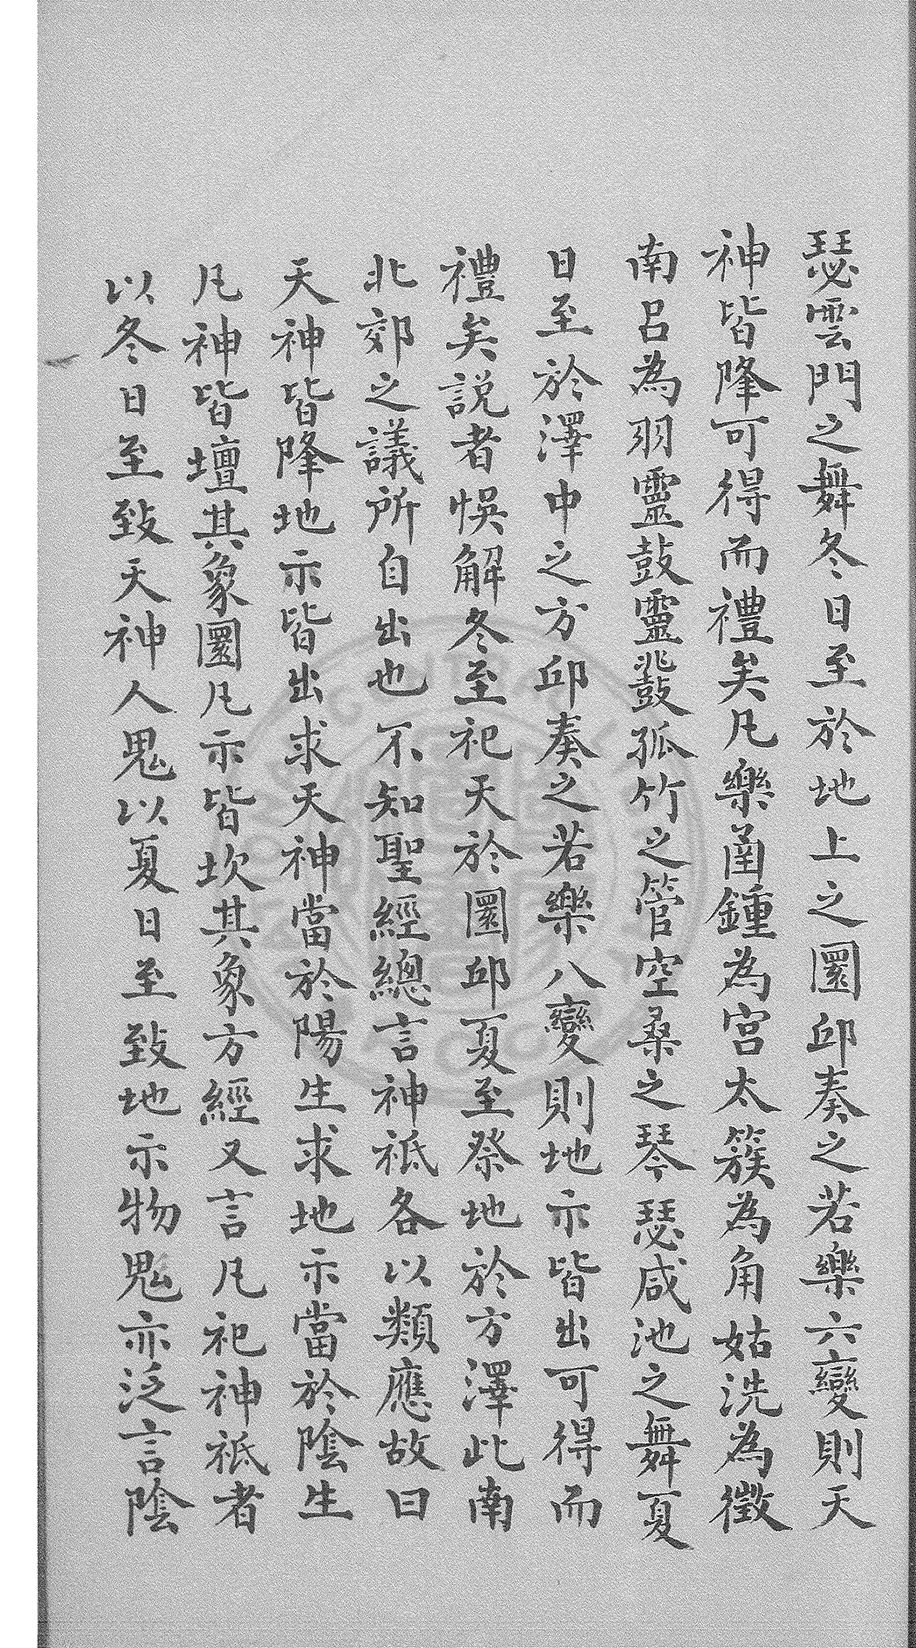 瑟雲門之舞冬日至於地上之圜邱奏之若樂六變則天
神皆降可得而禮矣凡樂圅鍾為宮太簇為角姑洗為徵
南呂為羽靈鼓靈鼗孤竹之管空桑之琴瑟咸池之舞夏
日至於澤中之方邱奏之若樂八變則地示皆出可得而
禮矣説者悞解冬至祀天於圜邱夏至祭地於方澤此南
北郊之議所自出也不知聖經總言神祇各以類應故曰
天神皆降地示皆出求天神當於陽生求地示當於陰生
凡神皆壇其象圜凡示皆坎其象方經又言凡祀神祇者
以冬日至致天神人鬼以夏日至致地示物鬽亦泛言陰